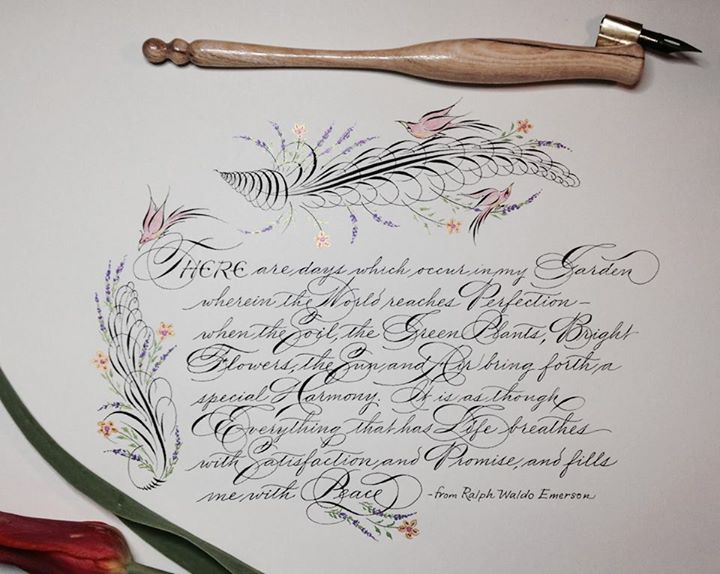 THERE are days which occur in my Garden
wherein the World reaches Perfection -
when the Soil, the Green Plants, Bright
Flowers, the Sun, and Air bring forth a
special Harmony. It is as though
Everything that has Life breathes
with Satisfaction, and Promise, and fills
me with Peace - from Ralph Waldo Emerson